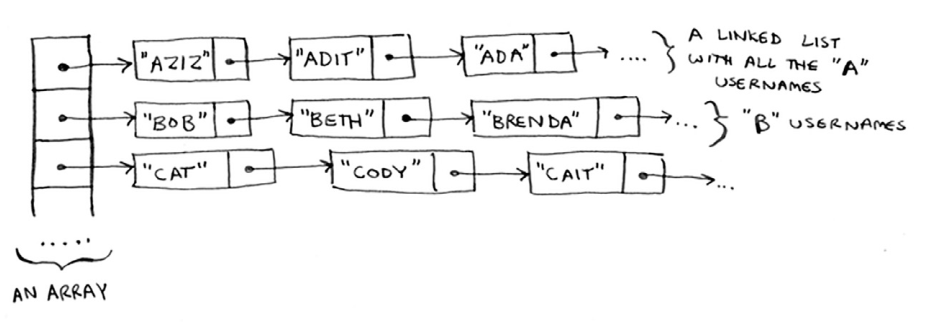 "AZIZ" "ADIT" "ADA" ....
A LINKED LIST
WITH ALL THE "A"
USERNAMES
"BOB" "BETH" "BRENDA" ... "B" USERNAMES
"CAT" "CODY" "CAIT" ...
.....
AN ARRAY